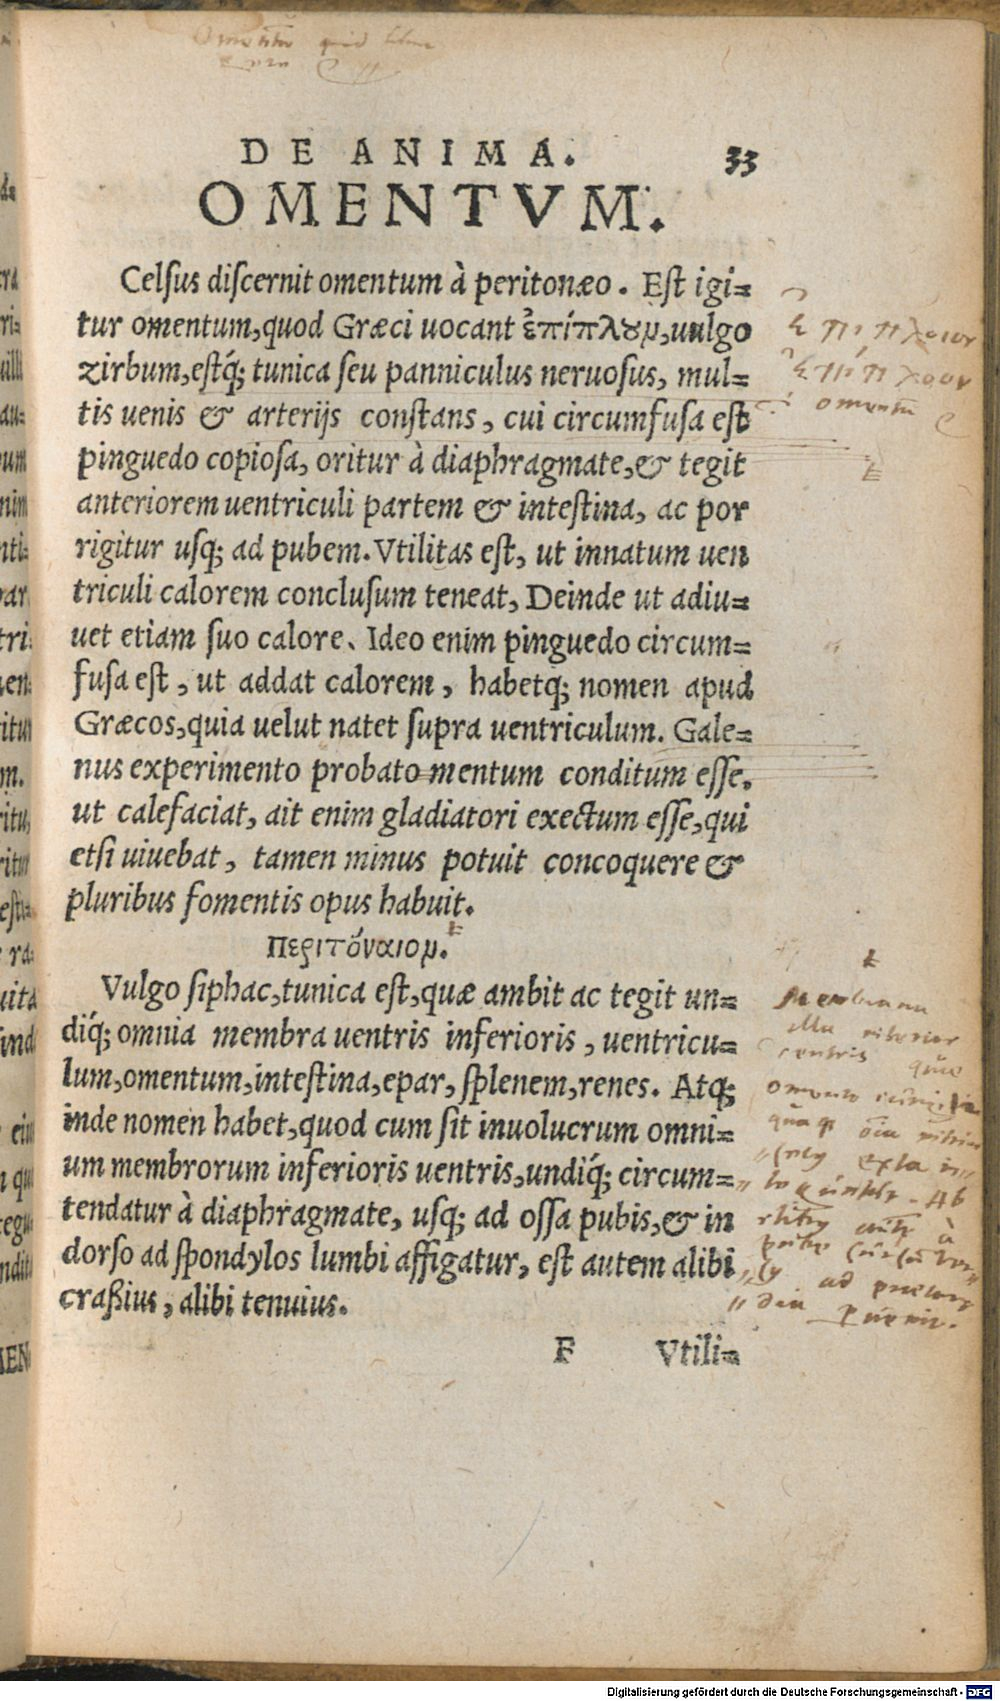 DE ANIMA. 33
OMENTVM.
Celſus diſcernit omentum à peritonæo. Eſt igi=
tur omentum, quod Græci uocant ἐπίπλουν, uulgo
zirbum, eſtq́; tunica ſeu panniculus neruoſus, mul=
tis uenis & arterijs conſtans, cui circumfuſa eſt
pinguedo copioſa, oritur à diaphragmate, & tegit
anteriorem uentriculi partem & inteſtina, ac por
rigitur uſq; ad pubem. Vtilitas eſt, ut innatum uen
triculi calorem concluſum teneat, Deinde ut adiu=
uet etiam ſuo calore. Ideo enim pinguedo circum=
fuſa eſt, ut addat calorem, habetq; nomen apud
Græcos, quia uelut natet ſupra uentriculum. Gale=
nus experimento probat omentum conditum eſſe.
ut calefaciat, ait enim gladiatori exectum eſſe, qui
etſi uiuebat, tamen minus potuit concoquere &
pluribus fomentis opus habuit.
Περιτόναιον.
Vulgo ſiphac, tunica eſt, quæ ambit ac tegit un=
diq́; omnia membra uentris inferioris, uentricu=
lum, omentum, inteſtina, epar, ſplenem, renes. Atq;
inde nomen habet, quod cum ſit inuolucrum omni=
um membrorum inferioris uentris, undiq́; circum=
tendatur à diaphragmate, uſq; ad oſſa pubis, & in
dorſo ad ſpondylos lumbi affigatur, eſt autem alibi
craßius, alibi tenuius.
F Vtili=
ἐπίπλοον
omentum
Membrana
Digitalisierung gefördert durch die Deutsche Forschungsgemeinschaft - DFG